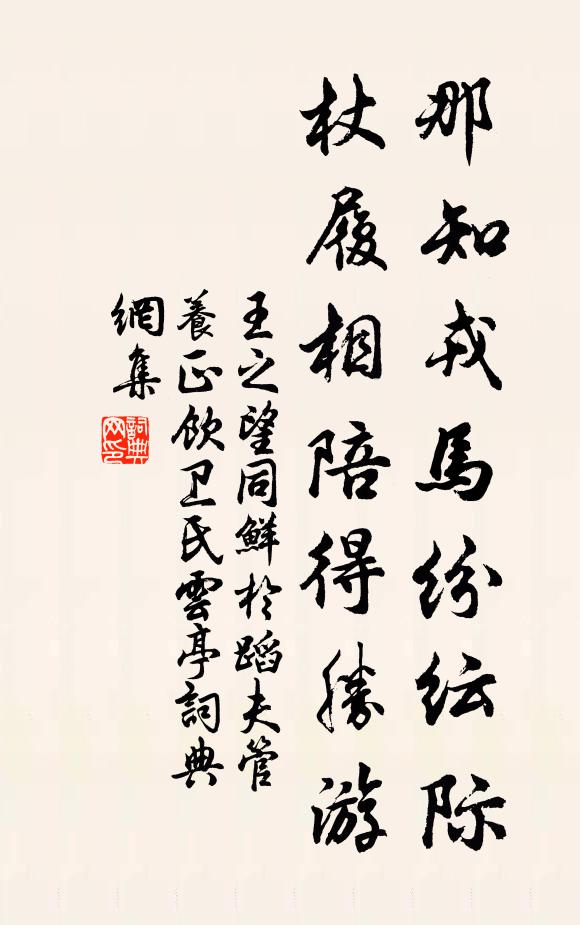 那知戎马纷纭际
杖履相陪得勝游
王之望同鮮於蹈夫管
養正飲卫氏雲亭詞典
網集
詞典网印